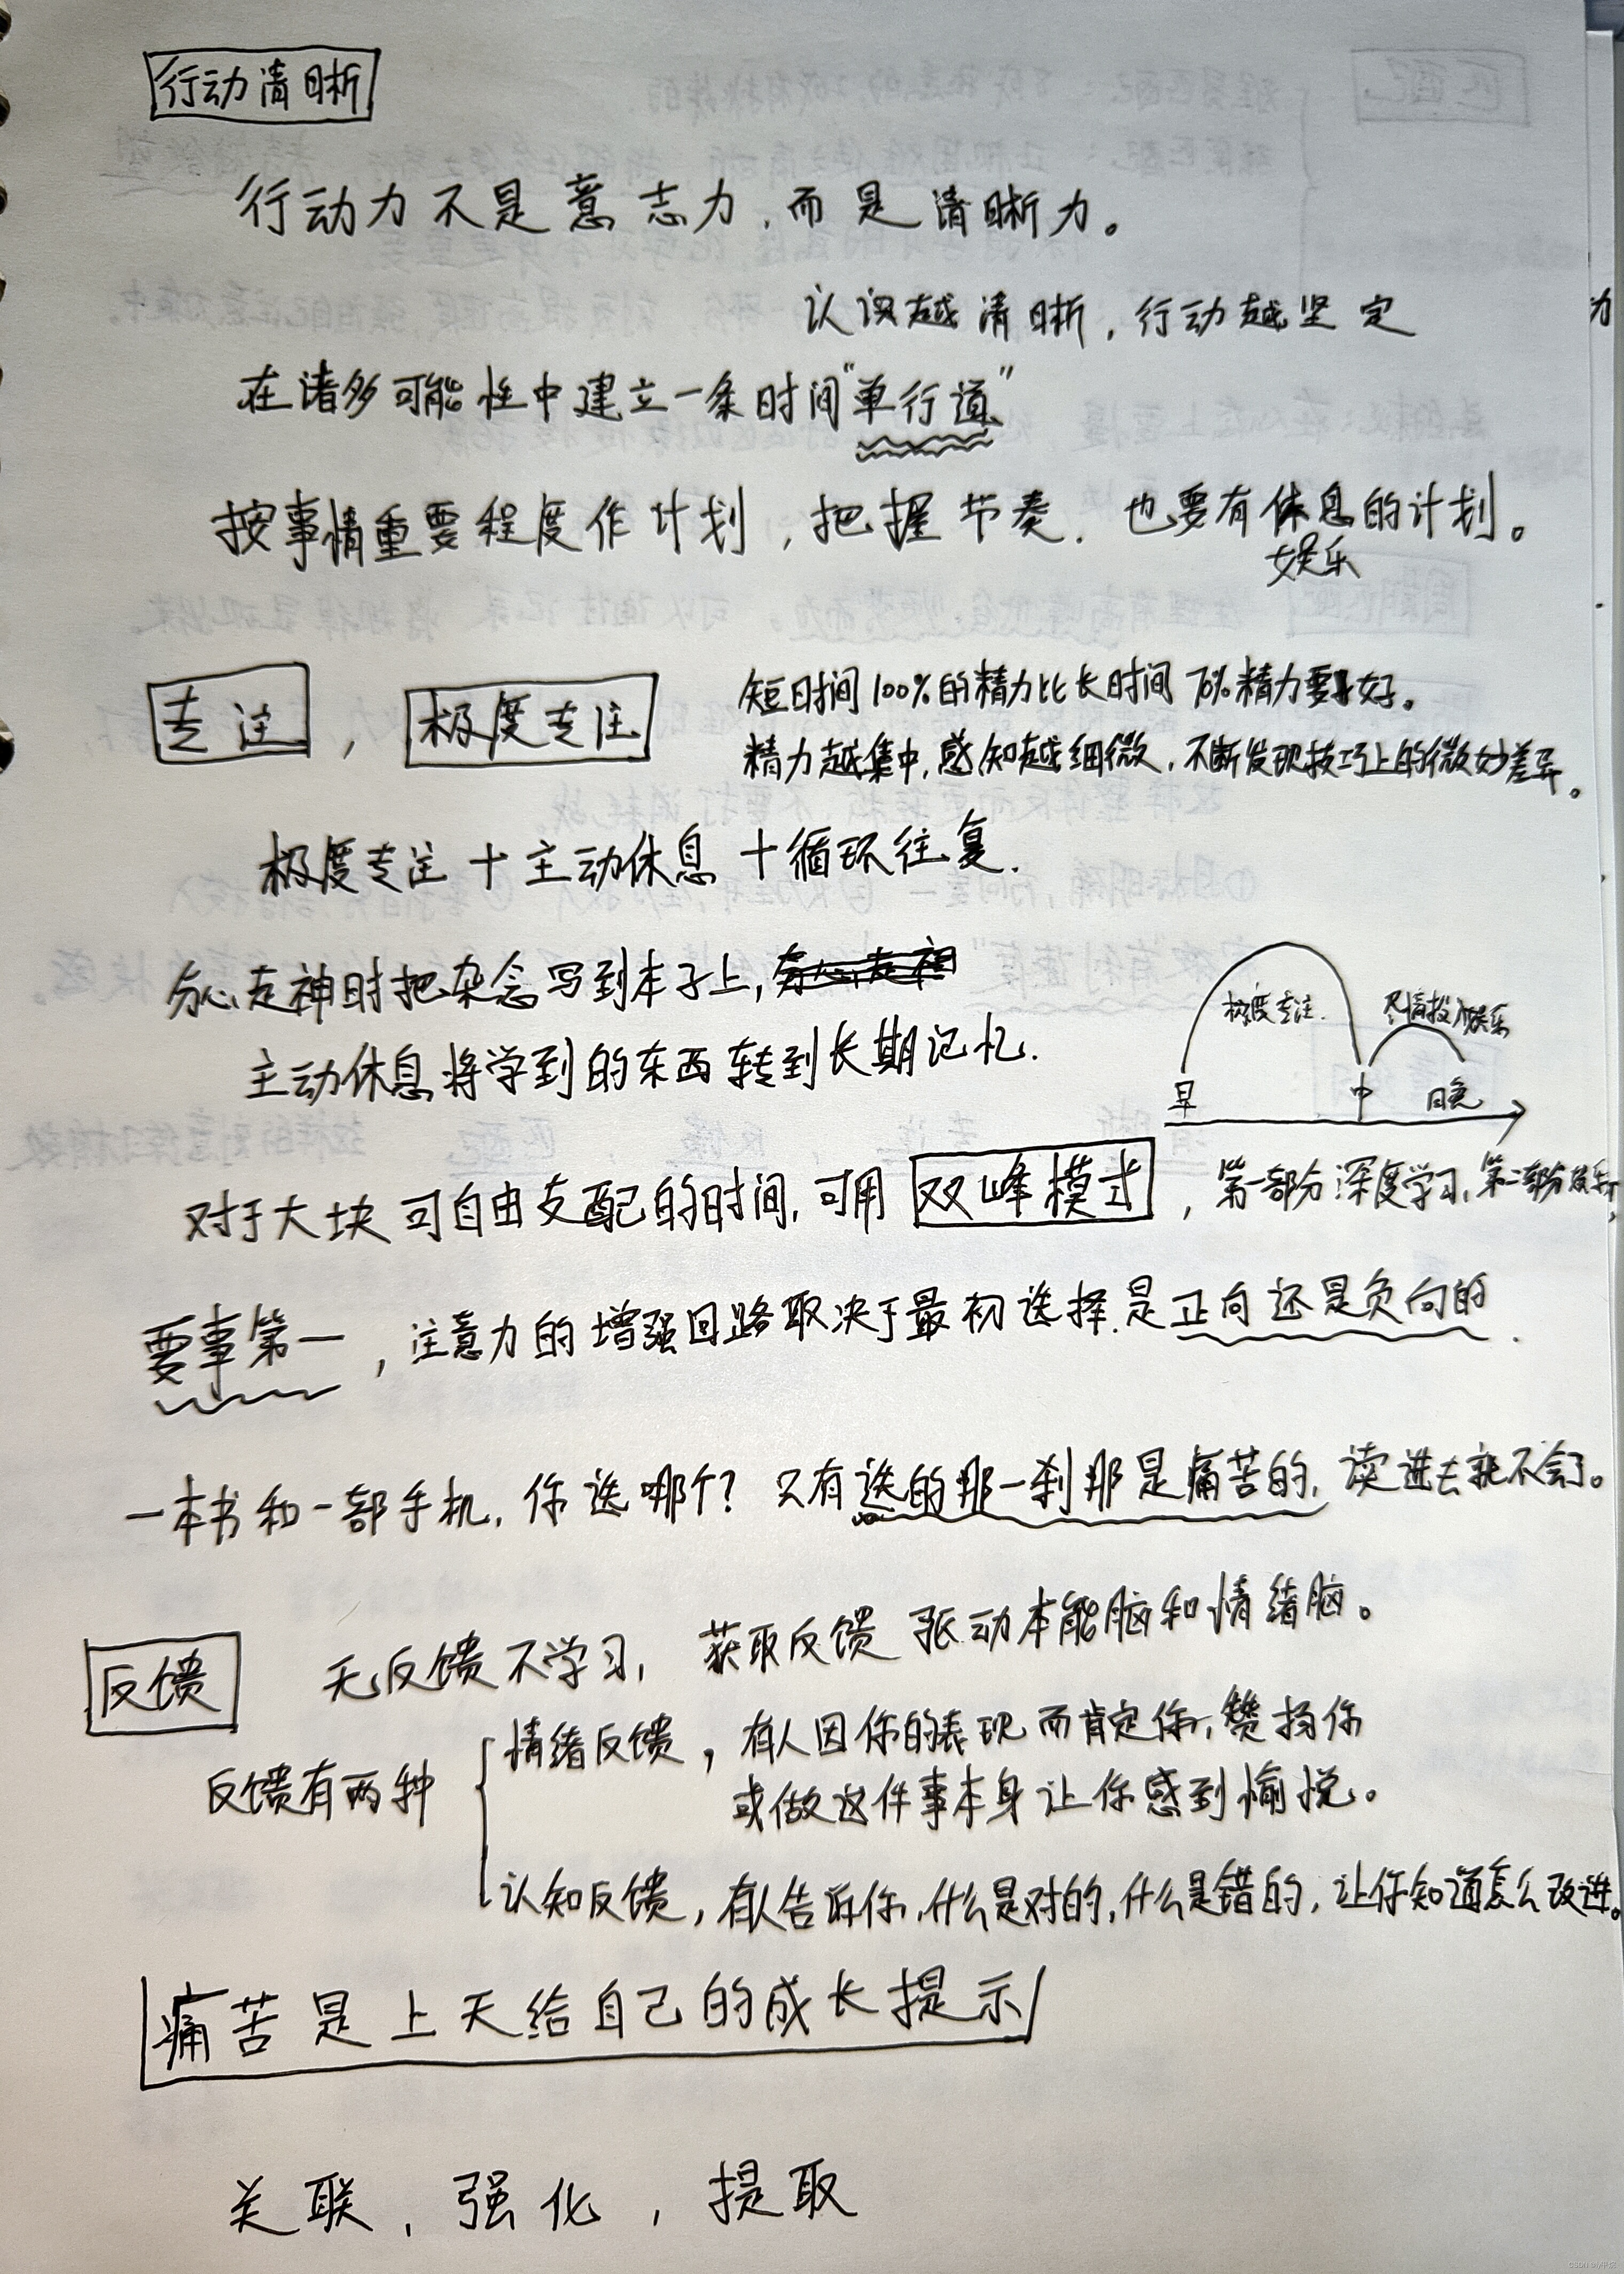 行动清晰
行动力不是意志力,而是清晰力。
认识越清晰,行动越坚定
在诸多可能性中建立一条时间"单行道"
按事情重要程度作计划,把握节奏.也要有休息的计划。
娱乐
专注,极度专注
短时间100%的精力比长时间70%精力要好。
精力越集中,感知越细微,不断发现技巧上的微妙差异。
极度专注+主动休息+循环往复.
分心走神时把杂念写到本子上,
主动休息将学到的东西转到长期记忆.
极度专注. 尽情投入娱乐
早 中 晚
对于大块可自由支配的时间,可用双峰模式,第一部分深度学习,第二部分
要事第一,注意力的增强回路取决于最初选择.是正向还是负向的.
一本书和一部手机,你选哪个?只有选的那一刹那是痛苦的,读进去就不会了。
反馈 无反馈不学习,获取反馈 驱动本能脑和情绪脑。
反馈有两种
情绪反馈,有人因你的表现而肯定你,赞扬你
或做这件事本身让你感到愉悦。
认知反馈,有人告诉你,什么是对的,什么是错的,让你知道怎么改进。
痛苦是上天给自己的成长提示
关联,强化,提取